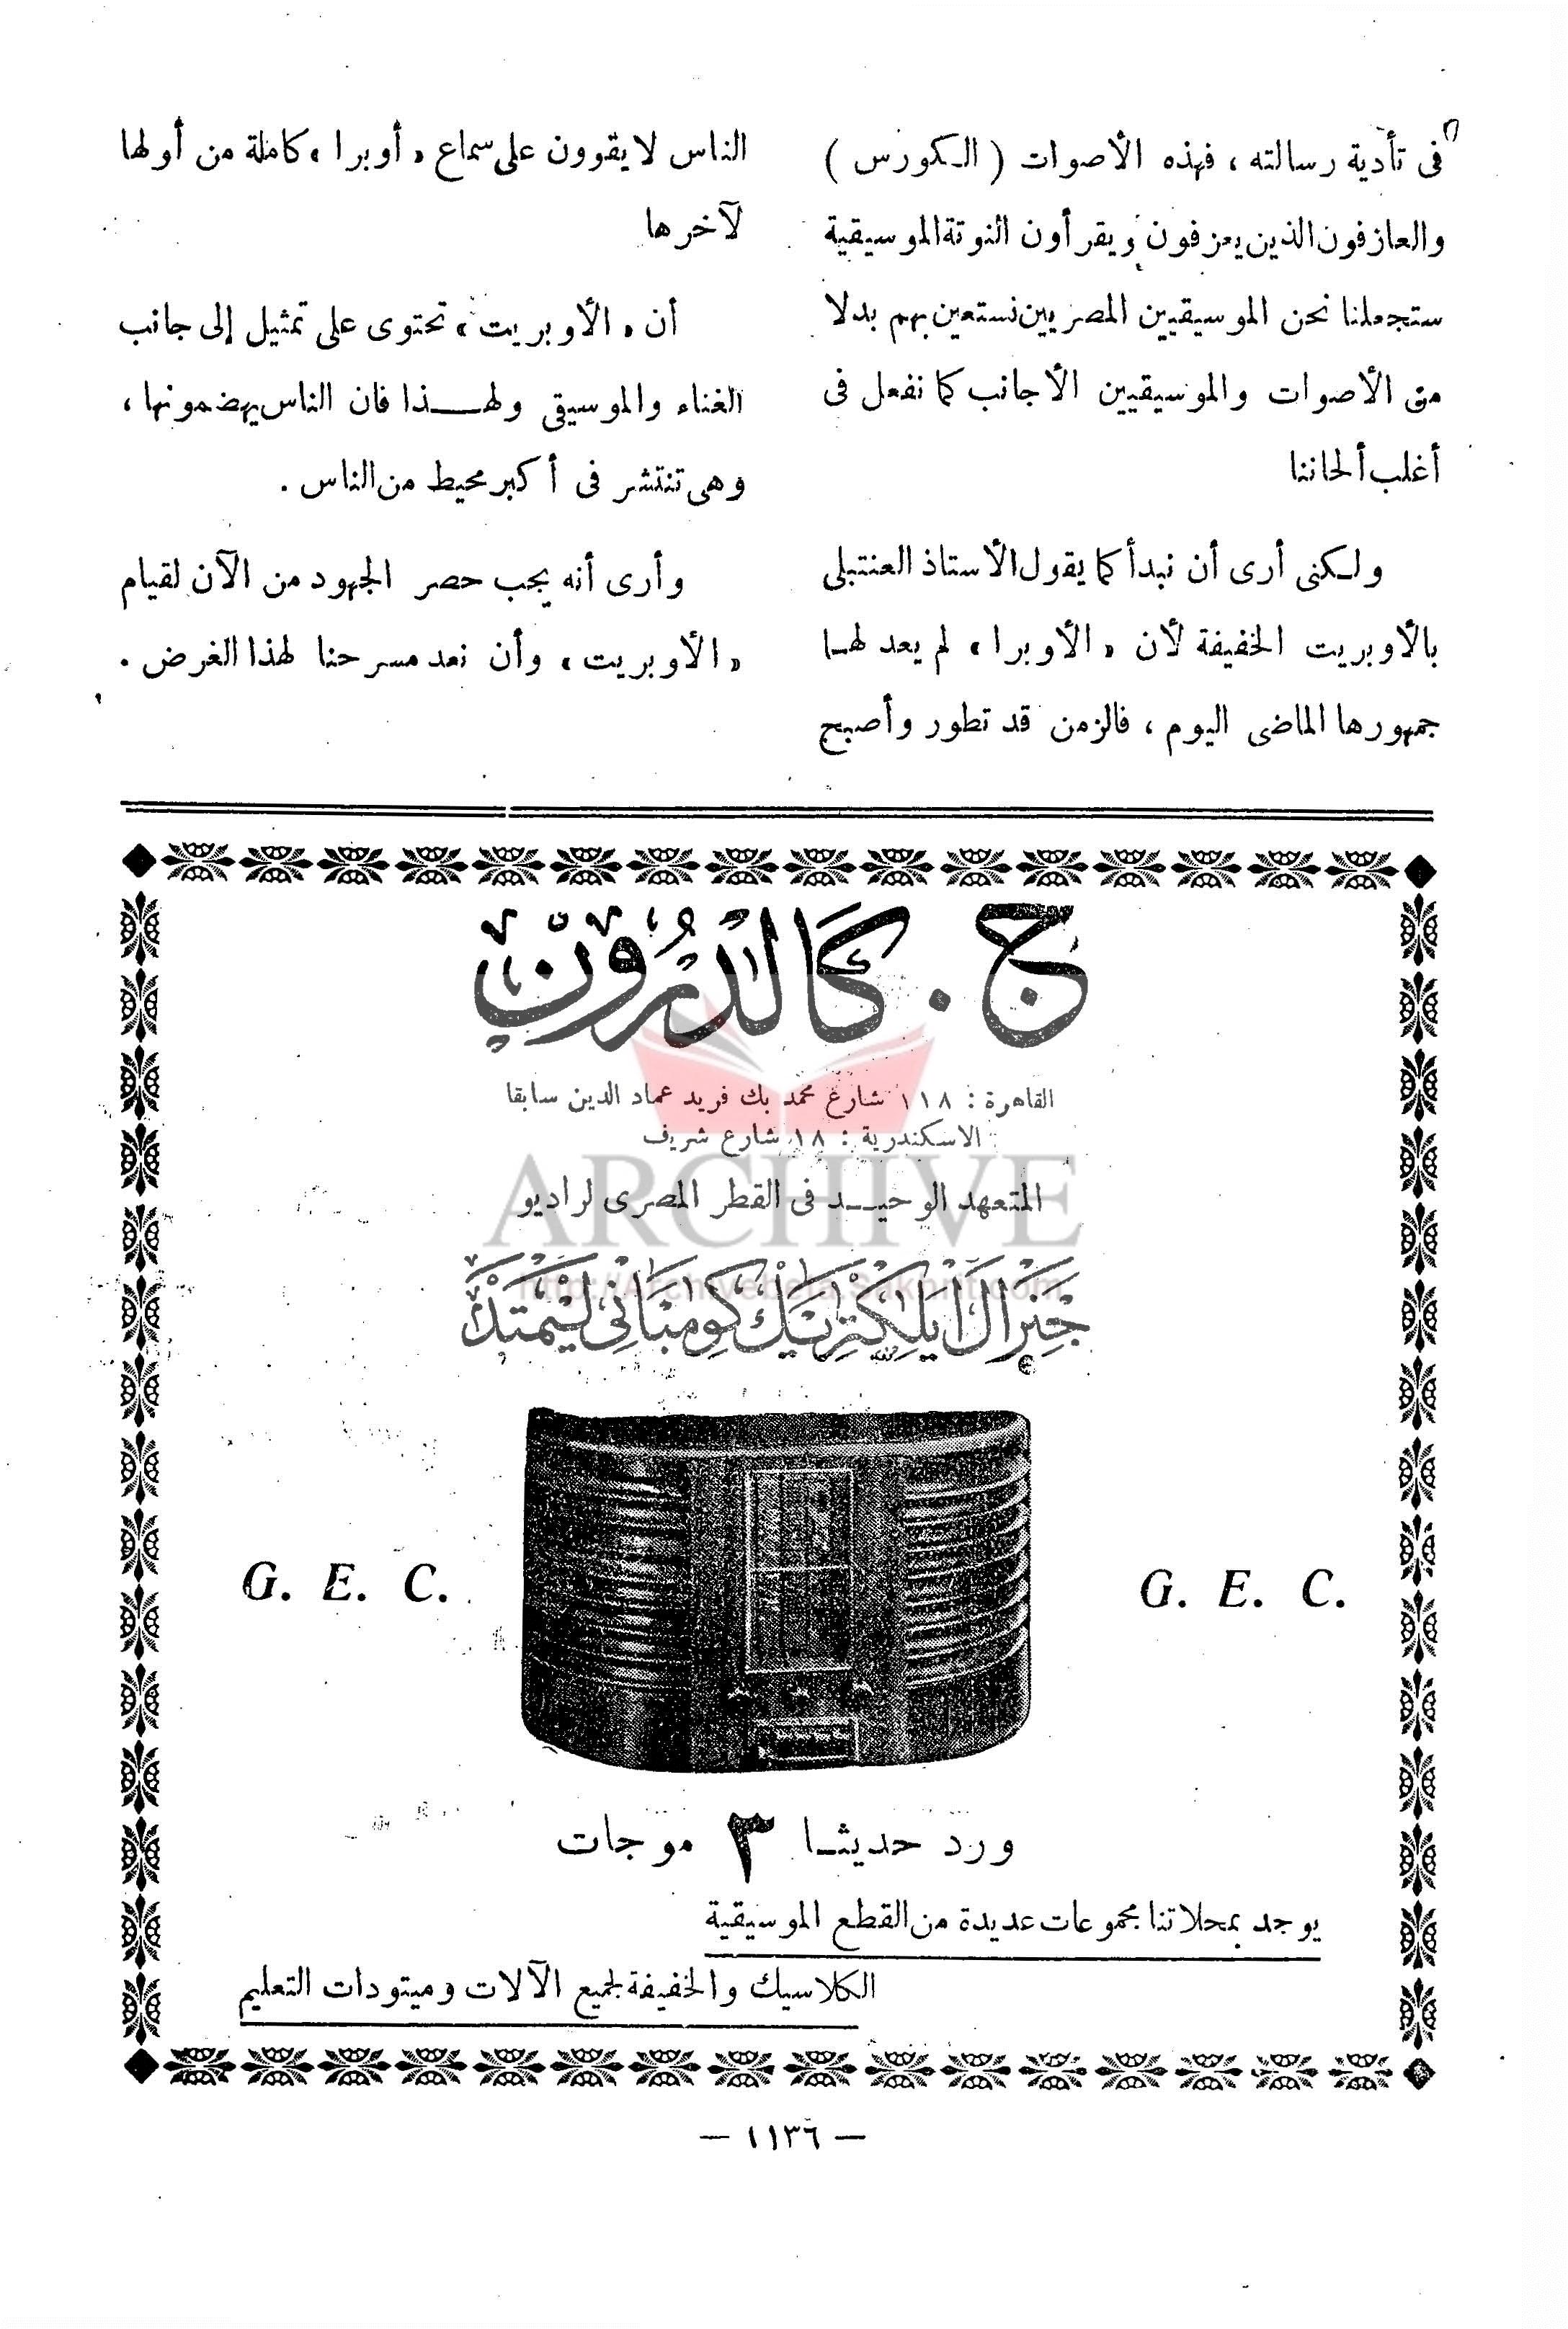 فى تأدية رسالته ، فهذه الأصوات ( الكورس )
والعازفون الذين يعزفون ويقرأون النوتة الموسيقية
ستجعلنا نحن الموسيقيين المصريين نستعين بهم بدلا
من الأصوات والموسيقيين الأجانب كما نفعل فى
أغلب ألحاننا
ولكنى أرى أن نبدأ كما يقول الأستاذ العنتبلى
بالأوبريت الخفيفة لأن « الأوبرا » لم يعد لها
جمهورها الماضى اليوم ، فالزمن قد تطور وأصبح
الناس لا يقوون على سماع « أوبرا » كاملة من أولها
لآخرها
أن « الأوبريت » تحتوى على تمثيل إلى جانب
الغناء والموسيقى ولهذا فان الناس يهضمونها ،
وهى تنتشر فى أكبر محيط من الناس .
وأرى أنه يجب حصر الجهود من الآن لقيام
« الأوبريت » وأن نعد مسرحنا لهذا الغرض .
ج . كالدرون
القاهرة : ١١٨ شارع محمد بك فريد عماد الدين سابقا
الاسكندرية : ١٨ شارع شريف
ARCHIVE
المتعهد الوحيد فى القطر المصرى لراديو
http://Archivebeta.Sakhrit.com
جنرال ايلكتريك كومبانى ليمتد
G. E. C.
G. E. C.
ورد حديثا ٣ موجات
يوجد بمحلاتنا مجموعات عديدة من القطع الموسيقية
الكلاسيك والخفيفة لجميع الآلات وميتودات التعليم
— ١١٣٦ —